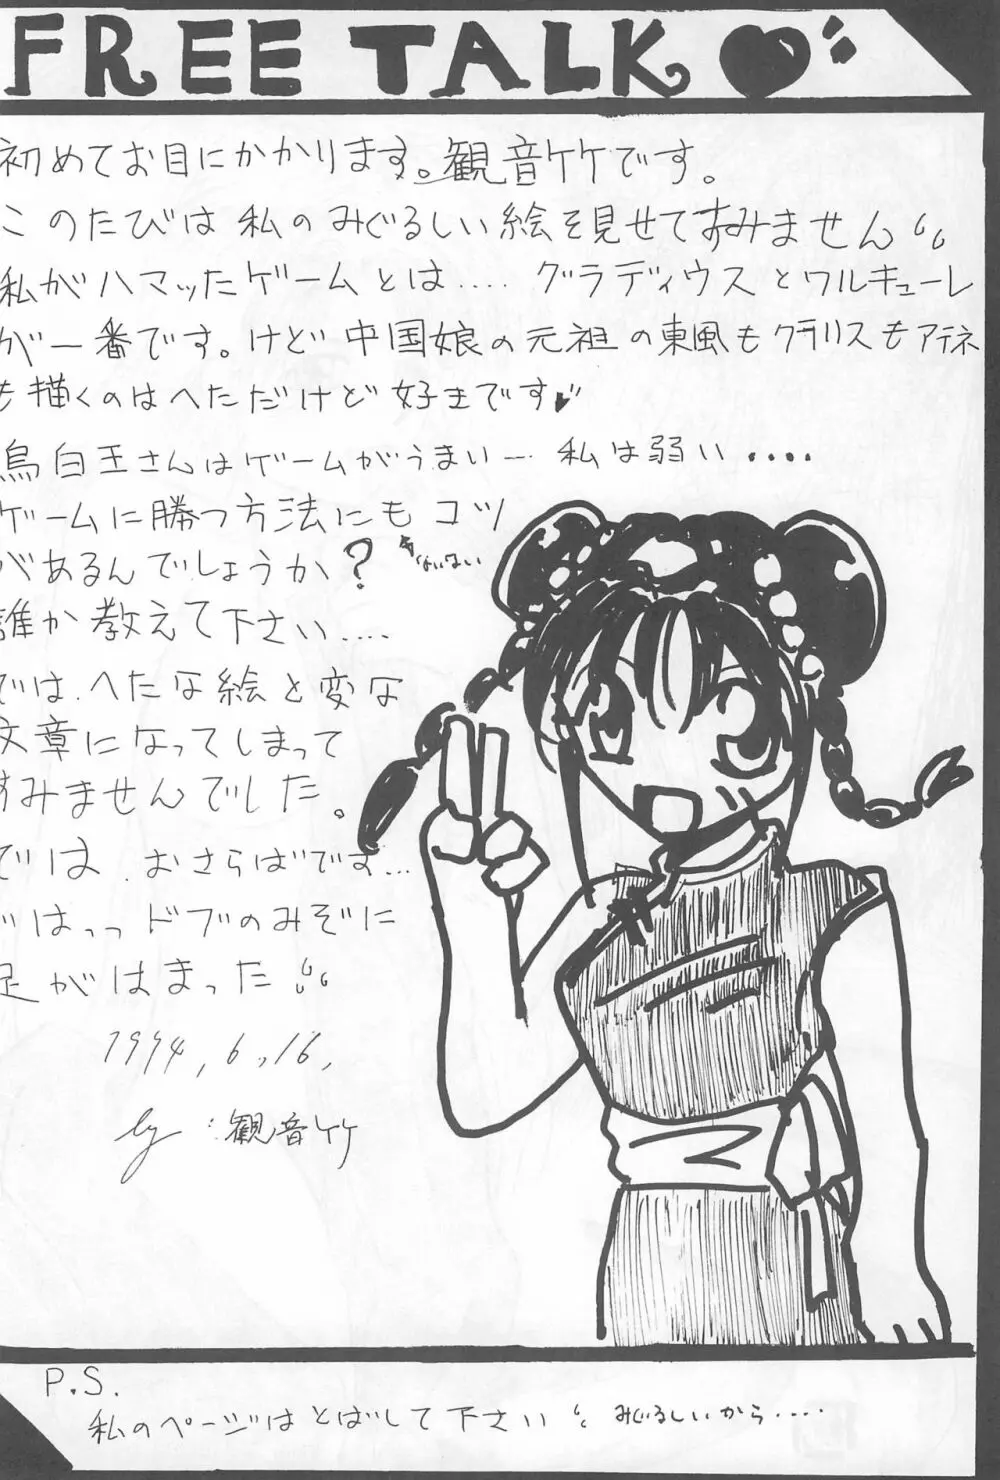 FREE TALK
初めてお目にかかります。観音竹です。
このたびは私のみぐるしい絵を見せてすみません
私がハマッたゲームとは.... グラディウスとワルキューレ
が一番です。けど中国娘の元祖の東風もクラリスもアテネ
も描くのはへただけど好きです
鳥白王さんはゲームがうまいー 私は弱い....
ゲームに勝つ方法にもコツ
があるんでしょうか?
ないない
誰か教えて下さい....
では、へたな絵と変な
文章になってしまって
すみませんでした。
では、おさらばです...
ではっっドブのみぞに
足がはまった
1994, 6, 16,
by:観音竹
P.S.
私のページはとばして下さい みぐるしいから....